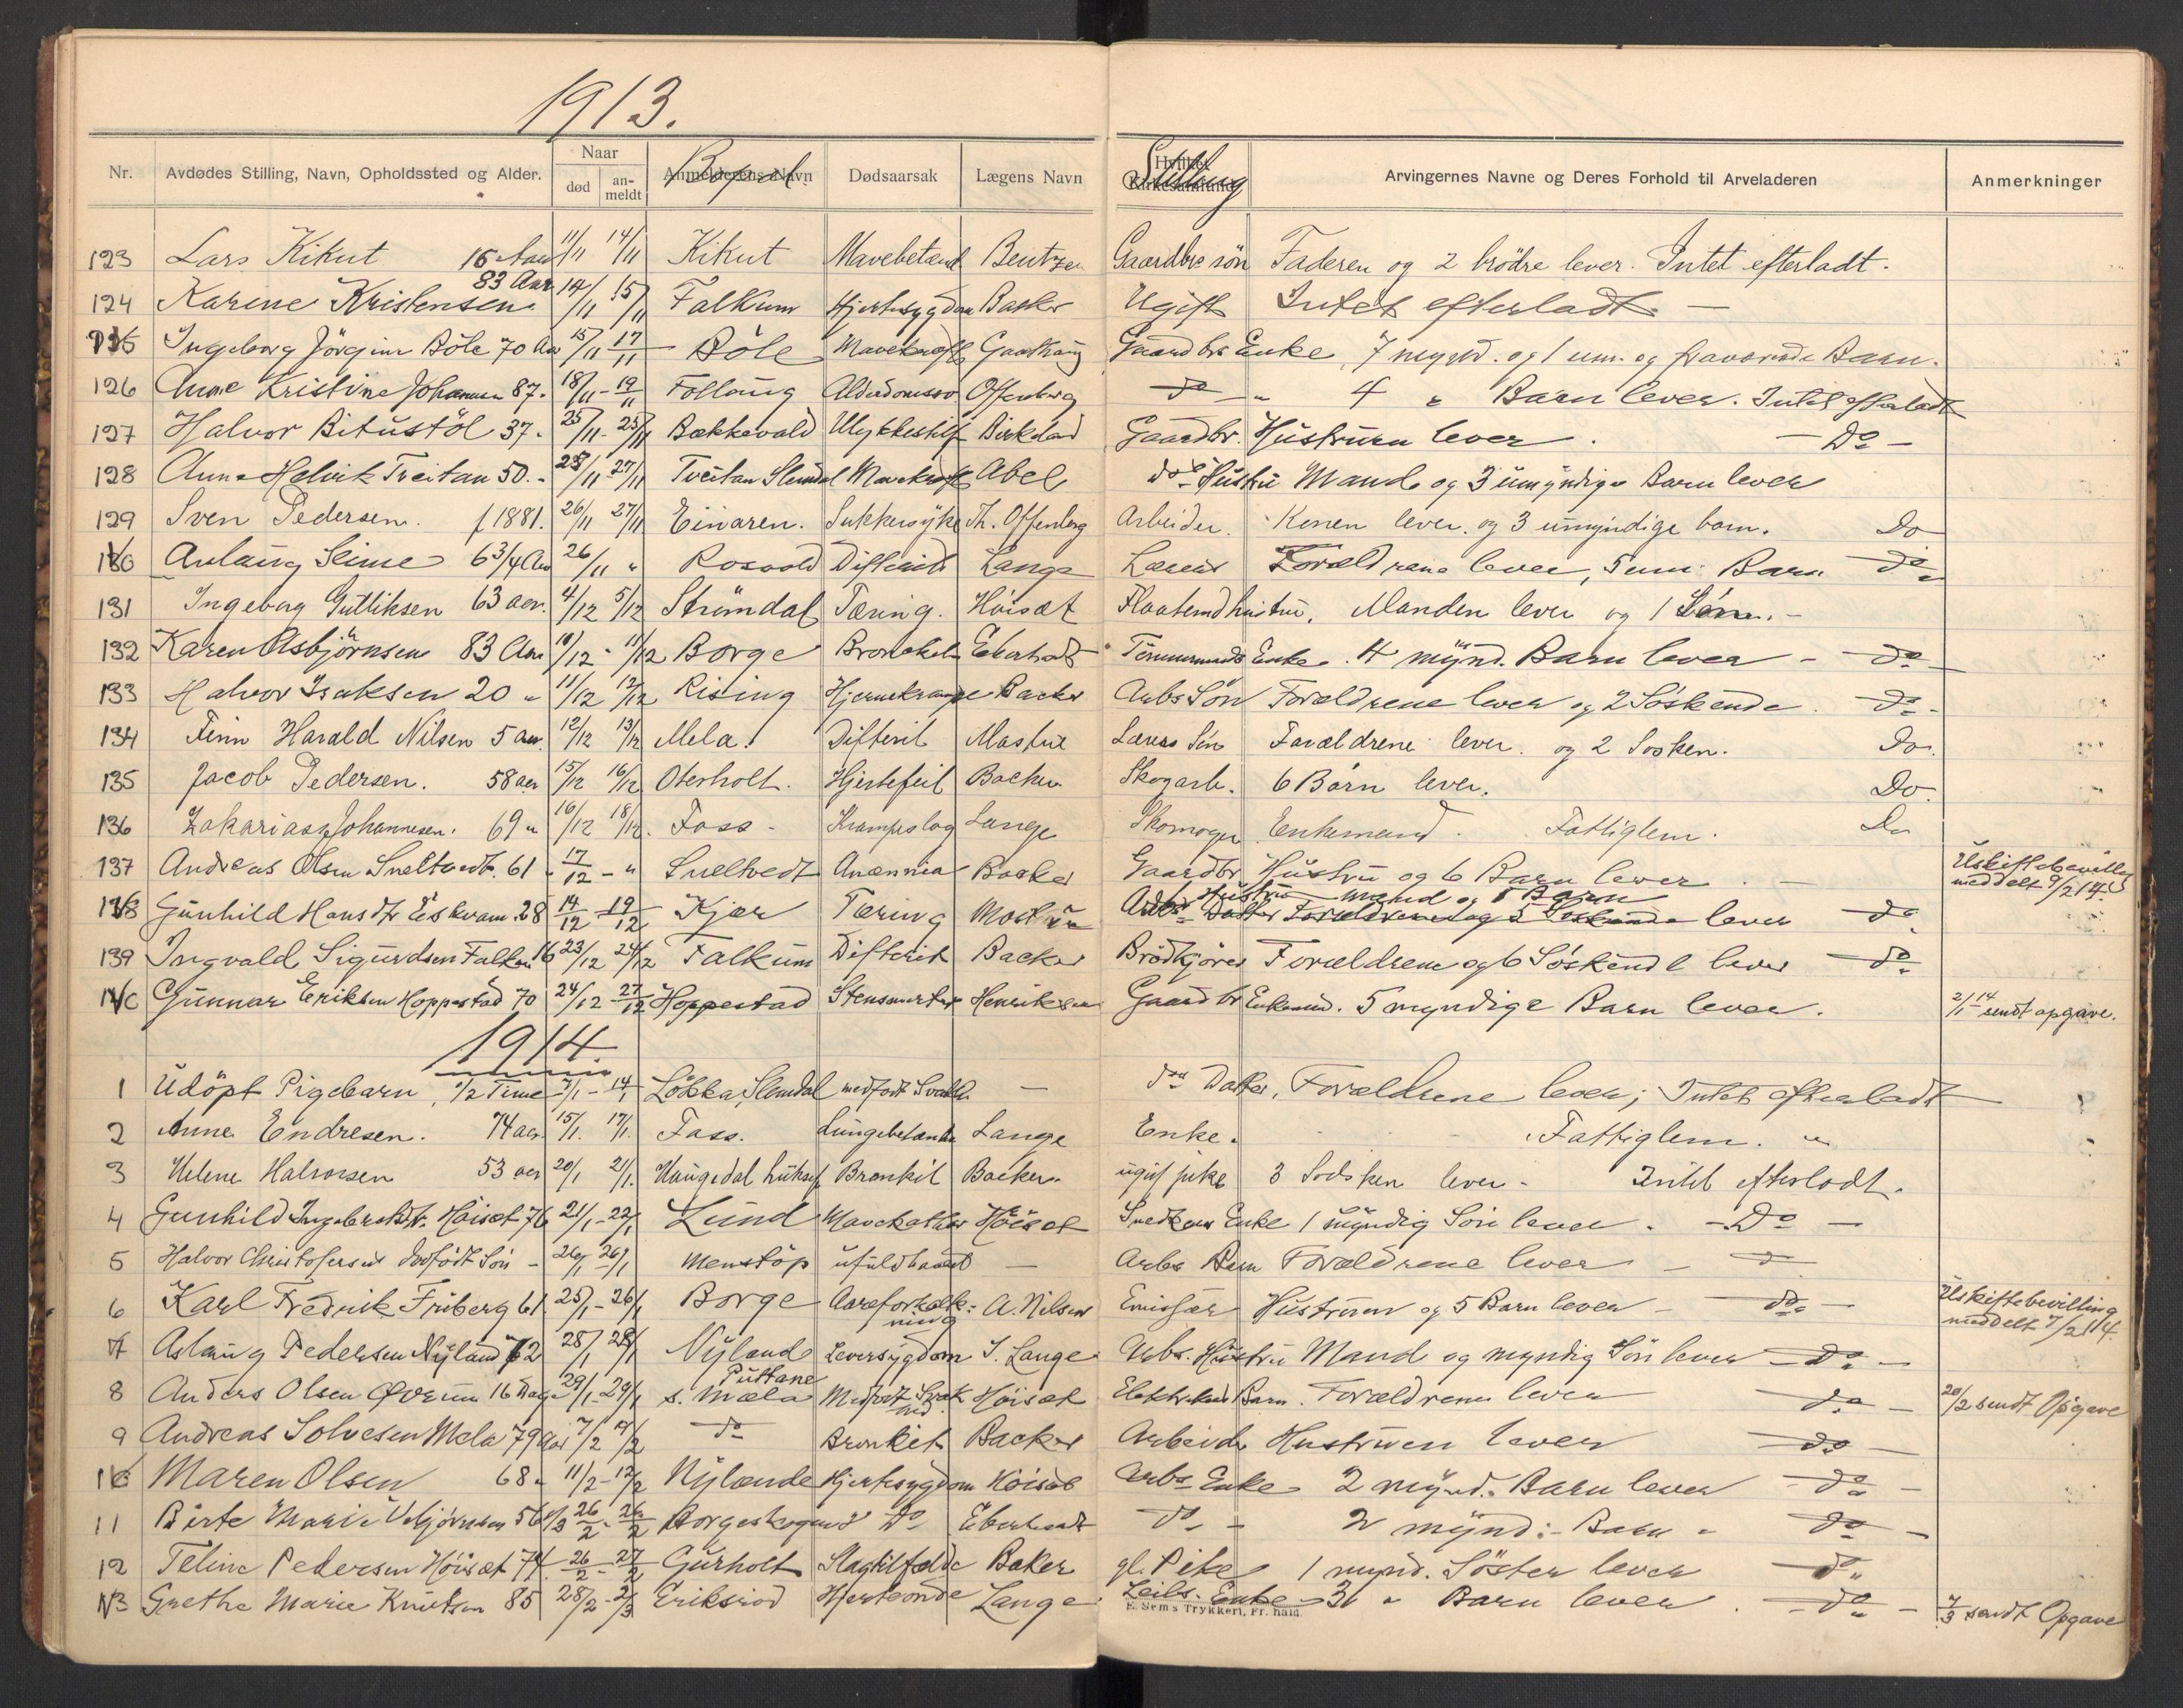 1913.
Nr. Avdødes Stilling, Navn, Opholdssted og Alder. Naar død anmeldt Anmelderens Navn Bopæl. Dødsaarsak Lægens Navn Hvilket Kirkesamfund Stilling Arvingernes Navne og Deres Forhold til Arveladeren Anmerkninger
123 Lars Kikut 16 Aar 11/11 14/11 Kikut Mavebetænd Bentzen Gaardbrs søn Faderen og 2 brödre lever. Intet efterladt.
124 Karine Kristensen 83 Aar 14/11 15/11 Falkum Hjertesygdom Backer Ugift Intet efterladt
125 Ingeborg Jörgine Böle 70 Aar 15/11 17/11 Böle Mavekræft Gaardbrs Enke, 7 mynd. og 1 um. og fraværende Barn.
126 Anne Kristine Johannesen 87. 18/11 - 19/11 Follaug Offenberg do " 4 " Barn lever. Intet efterladt
127 Halvor Bitustöl 37. 25/11 - 25/11 Bækkevold Ulykkestilf Birkeland Gaardbr. Hustruen lever. - Do -
128 Anne Helvik Tveitan 50. 25/11 - 27/11 Tveitan Slemdal Mavekræft Abel do Hustru Mand og 3 umyndige Barn lever
129 Sven Pedersen. f 1881. 26/11 27/11 Einaren. Sukkersyke Th. Offenberg Arbeider. Konen lever og 3 umyndige barn. Do
130 Aslaug Seime 6 3/4 Aar 26/11 " Rosvold Difterit Lange Lærers Forældrene lever, 5 um. Barn do
131 Ingeborg Gulliksen 63 aar. 4/12 5/12 Strömdal Tæring. Höisæt Flaatemdhustru. Manden lever og 1 Sön. -
132 Karen Asbjörnsen 83 Aar 10/12 - 11/12 Borge Bronchit Eberhardt Tömmermands Enke. 4 mynd. Barn lever - do
133 Halvor Isaksen 20 " 11/12 12/12 Rising Hjernekrampe Backer Arbs Sön Forældrene lever og 2 Söskende. do -
134 Finn Harald Nilsen 5 aar. 12/12 13/12 Mela. Difterit Mastue Lærers Sön Forældrene lever. og 2 Søsken. Do.
135 Jacob Pedersen. 58 aar 15/12 16/12 Oterholt. Hjertefeil Backer Skogarb. 6 Börn lever. Do.
136 Zakarias Johannesen. 69 " 16/12 18/12. Foss - Krampeslag Lange Skomager Enkemand. Fattiglem. Do
137 Andreas Olsen Sneltvedt. 61 " 17/12 - " Sneltvedt Anæmia Backer Gaardbr Hustru og 6 Barn lever. - Uskiftebevilling meddelt 9/2 14.
138 Gunhild Hansdtr Eiskvam. 28 14/12 - 19/12 Kjær Tæring Mastue Arbs Hustru Mand og 1 Barn Datter Forældrene og 5 Söskende lever do
139 Ingvald Sigurdsen Falkum 16 23/12 24/12 Falkum Difterit Backer Brödkjörer Forældrene og 6 Söskende lever do
140 Gunnar Eriksen Hoppestad 70 24/12 - 27/12 Hoppestad Stensmerter Henriksen Gaardbr Enkemd. 5 myndige Barn lever. 2/1 14 sendt opgave.
1914.
1 Udöpt Pigebarn, 1/2 Time 7/1 - 14/1 Lökka, Slemdal medfödt Svakh. - do Datter, Forældrene lever; Intet efterladt
2 Anne Endresen. 74 aar. 15/1. 17/1. Foss. Lungebetændl Lange Enke. Fattiglem. "
3 Helene Halvorsen 53 aar 20/1 21/1. Haugedal Bronkit Backer. ugift pike 3 Sødsken lever - Intet efterladt.
4 Gunhild Ingebretsdtr. Höisæt 76 21/1 - 22/1 Lund Mavekatharr Höisæt Snedkers Enke 1 myndig Sön lever. - Do -
5 Halvor Christofersens dødfödt Sön - 26/1 26/1 Menstöp ufuldbaaret - Arbs Barn Forældrene lever - do
6 Karl Fredrik Friberg 61 25/1 - 26/1 Borge Aareforkalkning A. Nilsen Emissær Hustruen og 5 Barn lever - do - Uskiftebevilling meddelt 7/2 14.
7 Aslaug Pedersen Nyland 62 28/1 28/1 Nyland Leversygdom I. Lange Arbs. Hustru Mand og myndig Sön lever - do -
8 Anders Olsen Øverum 16 Dage 29/1 - 29/1 Puttane s. Mæla Medfødt Svakhed Höisæt Barn. Forældrene lever do - 20/2 sendt Opgave
9 Andreas Solvesen Mela 79 Aar 7/2 9/2 do Bronkit Backer Arbeider Hustruen lever do -
10 Maren Olsen 68 " 11/2 - 12/2 Nylænde Hjertesygdom Höisæt Arbs Enke 2 mynd. Barn lever do -
11 Birte Marie 56 26/2 - 26/2 Borgeskogen do Eberhardt do - 2 mynd. - Barn " do -
12 Teline Pedersen Höisæt 74 26/2 - 27/2 Gurholt Slagtilfælde Baker gl. Pike 1 mynd. Söster lever do
13 Grethe Marie Knutsen 85 28/2 - 2/3 Eriksrød Hjerteonde Lange Leils. Enke - 3 " Barn lever. - do - 7/3 sendt Opgave
E. Sem's Trykkeri, Fr.hald.